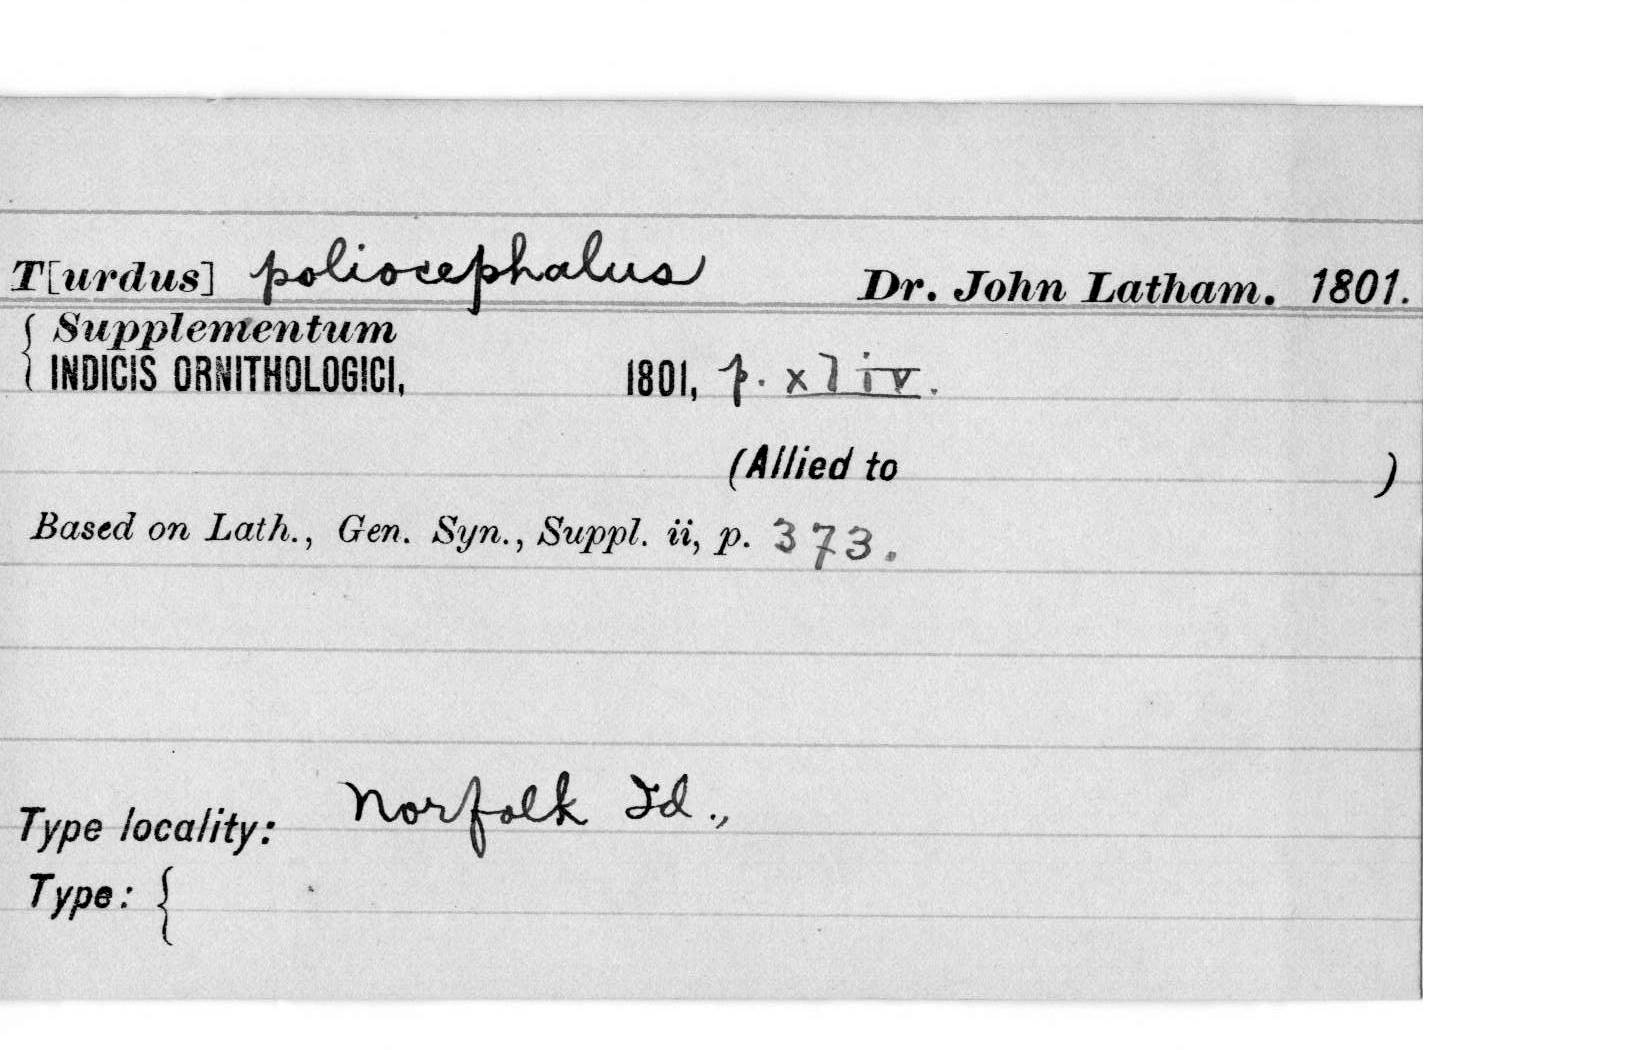 T[urdus] poliocephalus Dr. John Latham. 1801.
{ Supplementum
INDICIS ORNITHOLOGICI, 1801, p. xliv.
(Allied to )
Based on Lath., Gen. Syn., Suppl. ii, p. 373.
Type locality: Norfolk Id.,
Type: {